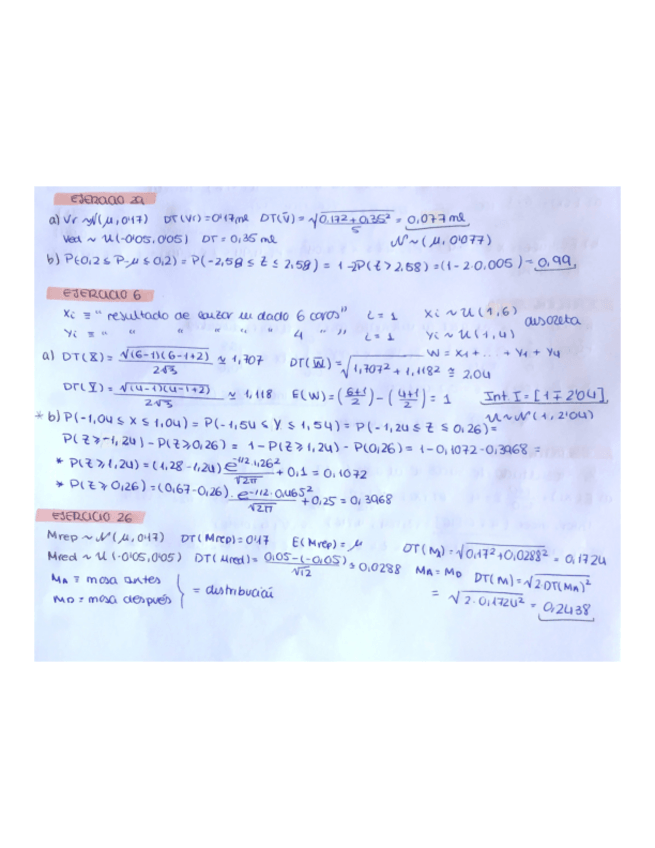 EJERCICIO 22
a) Vr ~ N(μ, 0'17) DT(Vr) = 0'17 ml DT(V̄) = √(0,17² + 0,35²)/5 = 0,077 ml
Ved ~ U(-0'05, 0'05) DT = 0,35 ml N ~ (μ, 0'077)
b) P(0,2 ≤ P-μ ≤ 0,2) = P(-2,58 ≤ Z ≤ 2,58) = 1-2P(Z > 2,58) = (1-2·0,005) = 0,99
EJERCICIO 6
Xi ≡ "resultado de lanzar un dado 6 caras" i = 1 Xi ~ U(1,6) discreta
Yi ≡ " " " " " 4 " i = 1 Yi ~ U(1,4)
W = X1 + ... + Y1 + Y4
a) DT(X) = √(6-1)(6-1+2) / 2√3 ≃ 1,707 DT(W) = √1,707² + 1,118² ≅ 2,04
DT(Y) = √(4-1)(4-1+2) / 2√3 ≃ 1,118 E(W) = (6+1/2) - (4+1/2) = 1 Int I = [1 ∓ 2'04]
U ~ N(1, 2'04)
* b) P(-1,04 ≤ X ≤ 1,04) = P(-1,54 ≤ Y ≤ 1,54) = P(-1,24 ≤ Z ≤ 0,26) =
P(Z ≥ -1,24) - P(Z ≥ 0,26) = 1 - P(Z ≥ 1,24) - P(0,26) = 1 - 0,1072 - 0,3968 =
* P(Z ≥ 1,24) = (1,28 - 1,24) e^(-1/2 · 1,26²) / √2π + 0,1 = 0,1072
* P(Z ≥ 0,26) = (0,67 - 0,26) · e^(-1/2 · 0,465²) / √2π + 0,25 = 0,3968
EJERCICIO 26
Mrep ~ N(μ, 0'17) DT(Mrep) = 0'17 E(Mrep) = μ DT(M) = √0,17² + 0,0288² = 0,1724
Mred ~ U(-0'05, 0'05) DT(Mred) = 0,05 - (-0,05) / √12 = 0,0288 MA = MD DT(M) = √2·DT(MA)²
MA ≡ masa antes
MD = masa después } = distribución
= √2·0,1724² = 0,2438